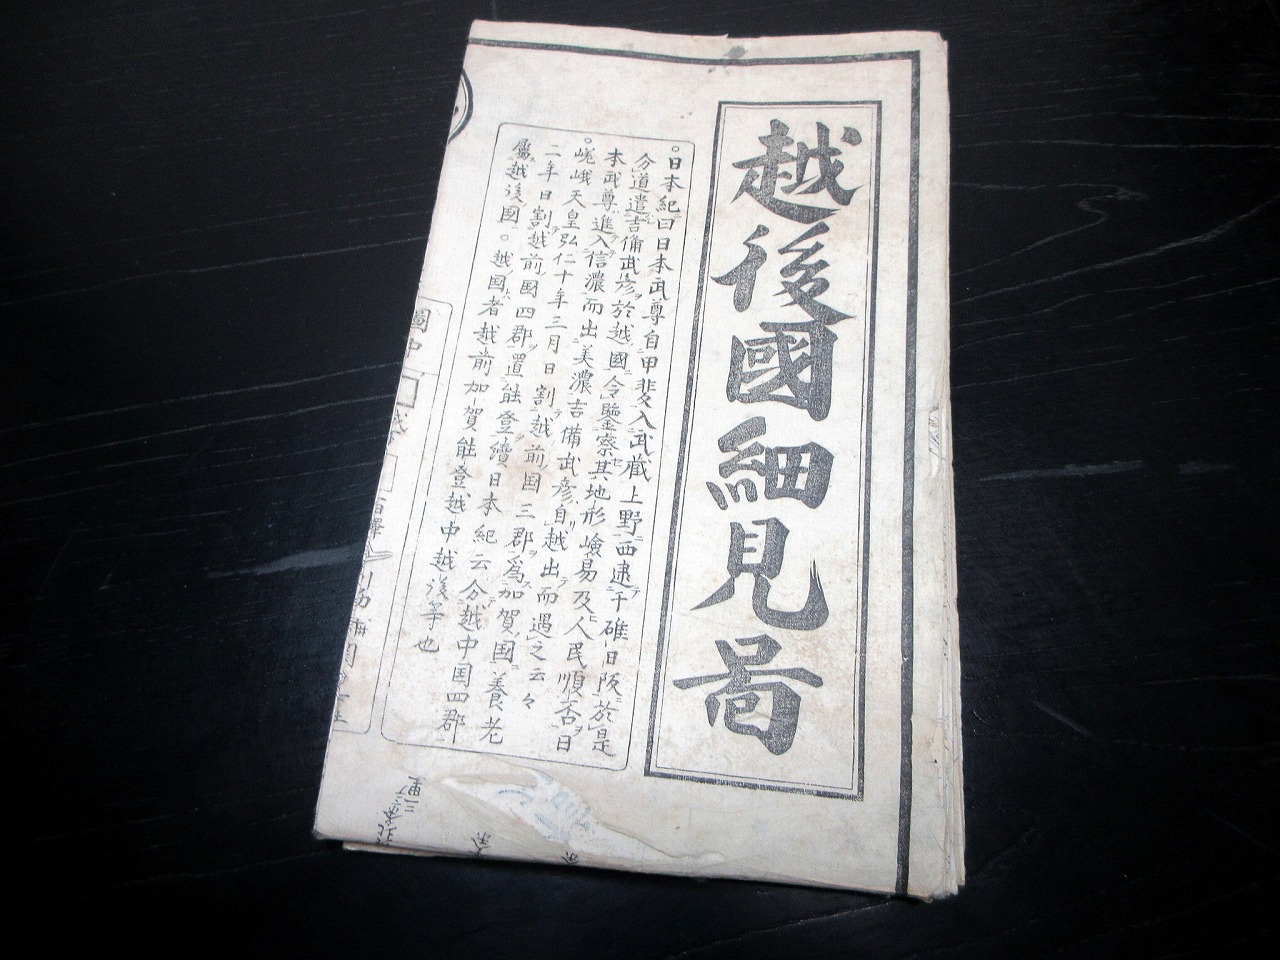 越後國細見啚
○日本紀曰日本武尊自甲斐入武蔵上野西逮于碓日阪於是
分道遣吉備武彦於越國令鑒察其地形嶮易及人民順否日
本武尊進入信濃而出美濃吉備武彦自越出而遇之云々
○嵯峨天皇弘仁十年三月日割越前国三郡為加賀國養老
二年日割越前国四郡置能登續日本紀云分越中国四郡
屬越後國○越国者越前加賀能登越中越後等也